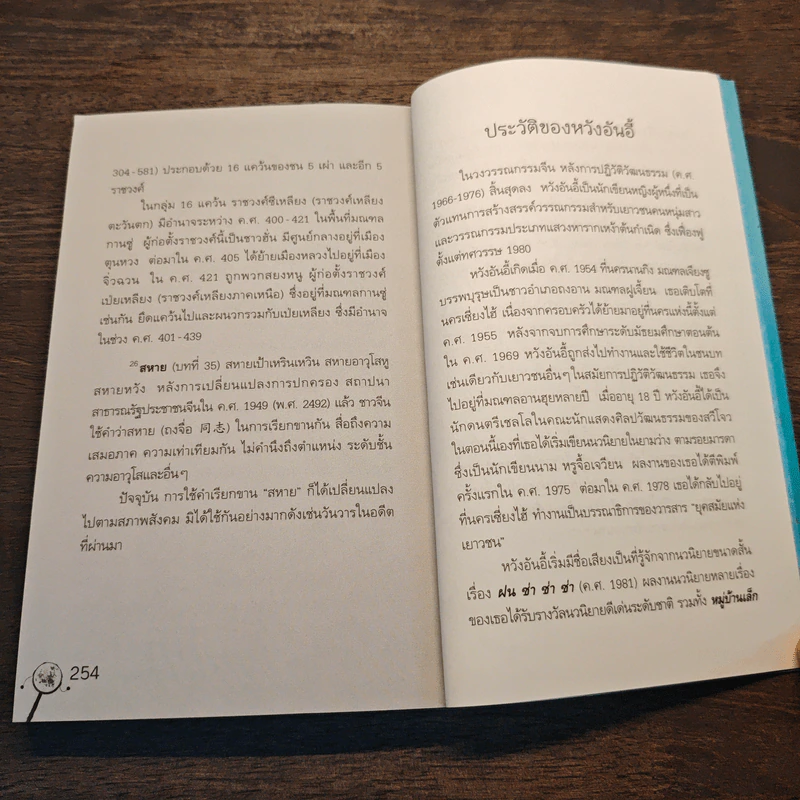 304-581) ประกอบด้วย 16 แคว้นของชน 5 เผ่า และอีก 5
ราชวงศ์
ในกลุ่ม 16 แคว้น ราชวงศ์ซีเหลียง (ราชวงศ์เหลียง
ตะวันตก) มีอำนาจระหว่าง ค.ศ. 400-421 ในพื้นที่มณฑล
กานซู่ ผู้ก่อตั้งราชวงศ์นี้เป็นชาวฮั่น มีศูนย์กลางอยู่ที่เมือง
ตุนหวง ต่อมาใน ค.ศ. 405 ได้ย้ายเมืองหลวงไปอยู่ที่เมือง
จิ่วฉวน ใน ค.ศ. 421 ถูกพวกสยงหนู ผู้ก่อตั้งราชวงศ์
เป่ยเหลียง (ราชวงศ์เหลียงภาคเหนือ) ซึ่งอยู่ที่มณฑลกานซู่
เช่นกัน ยึดแคว้นไปและผนวกรวมกับเป่ยเหลียง ซึ่งมีอำนาจ
ในช่วง ค.ศ. 401-439
26 สหาย (บทที่ 35) สหายเป้าเหรินเหวิน สหายอาวุโสหู
สหายหวัง หลังการเปลี่ยนแปลงการปกครอง สถาปนา
สาธารณรัฐประชาชนจีนใน ค.ศ. 1949 (พ.ศ. 2492) แล้ว ชาวจีน
ใช้คำว่าสหาย (ถงจื่อ 同志) ในการเรียกขานกัน สื่อถึงความ
เสมอภาค ความเท่าเทียมกัน ไม่คำนึงถึงตำแหน่ง ระดับชั้น
ความอาวุโสและอื่นๆ
ปัจจุบัน การใช้คำเรียกขาน "สหาย" ก็ได้เปลี่ยนแปลง
ไปตามสภาพสังคม มิได้ใช้กันอย่างมากดังเช่นวันวารในอดีต
ที่ผ่านมา
254
ประวัติของหวังอันอี้
ในวงวรรณกรรมจีน หลังการปฏิวัติวัฒนธรรม (ค.ศ.
1966-1976) สิ้นสุดลง หวังอันอี้เป็นนักเขียนหญิงผู้หนึ่งที่เป็น
ตัวแทนการสร้างสรรค์วรรณกรรมสำหรับเยาวชนคนหนุ่มสาว
และวรรณกรรมประเภทแสวงหารากเหง้าต้นกำเนิด ซึ่งเฟื่องฟู
ตั้งแต่ทศวรรษ 1980
หวังอันอี้เกิดเมื่อ ค.ศ. 1954 ที่นครนานกิง มณฑลเจียงซู
บรรพบุรุษเป็นชาวอำเภอถงอาน มณฑลฝูเจี้ยน เธอเติบโตที่
นครเซี่ยงไฮ้ เนื่องจากครอบครัวได้ย้ายมาอยู่ที่นครแห่งนี้ตั้งแต่
ค.ศ. 1955 หลังจากจบการศึกษาระดับมัธยมศึกษาตอนต้น
ใน ค.ศ. 1969 หวังอันอี้ถูกส่งไปทำงานและใช้ชีวิตในชนบท
เช่นเดียวกับเยาวชนอื่นๆ ในสมัยการปฏิวัติวัฒนธรรม เธอจึง
ไปอยู่ที่มณฑลอานฮุยหลายปี เมื่ออายุ 18 ปี หวังอันอี้ได้เป็น
นักดนตรีเชลโลในคณะนักแสดงศิลปวัฒนธรรมของสวีโจว
ในตอนนี้เองที่เธอได้เริ่มเขียนนวนิยายในยามว่าง ตามรอยมารดา
ซึ่งเป็นนักเขียนนาม หรูจื้อเจวียน ผลงานของเธอได้ตีพิมพ์
ครั้งแรกใน ค.ศ. 1975 ต่อมาใน ค.ศ. 1978 เธอได้กลับไปอยู่
ที่นครเซี่ยงไฮ้ ทำงานเป็นบรรณาธิการของวารสาร "ยุคสมัยแห่ง
เยาวชน"
หวังอันอี้เริ่มมีชื่อเสียงเป็นที่รู้จักจากนวนิยายขนาดสั้น
เรื่อง ฝน ซ่า ซ่า ซ่า (ค.ศ. 1981) ผลงานนวนิยายหลายเรื่อง
ของเธอได้รับรางวัลนวนิยายดีเด่นระดับชาติ รวมทั้ง หมู่บ้านเล็ก